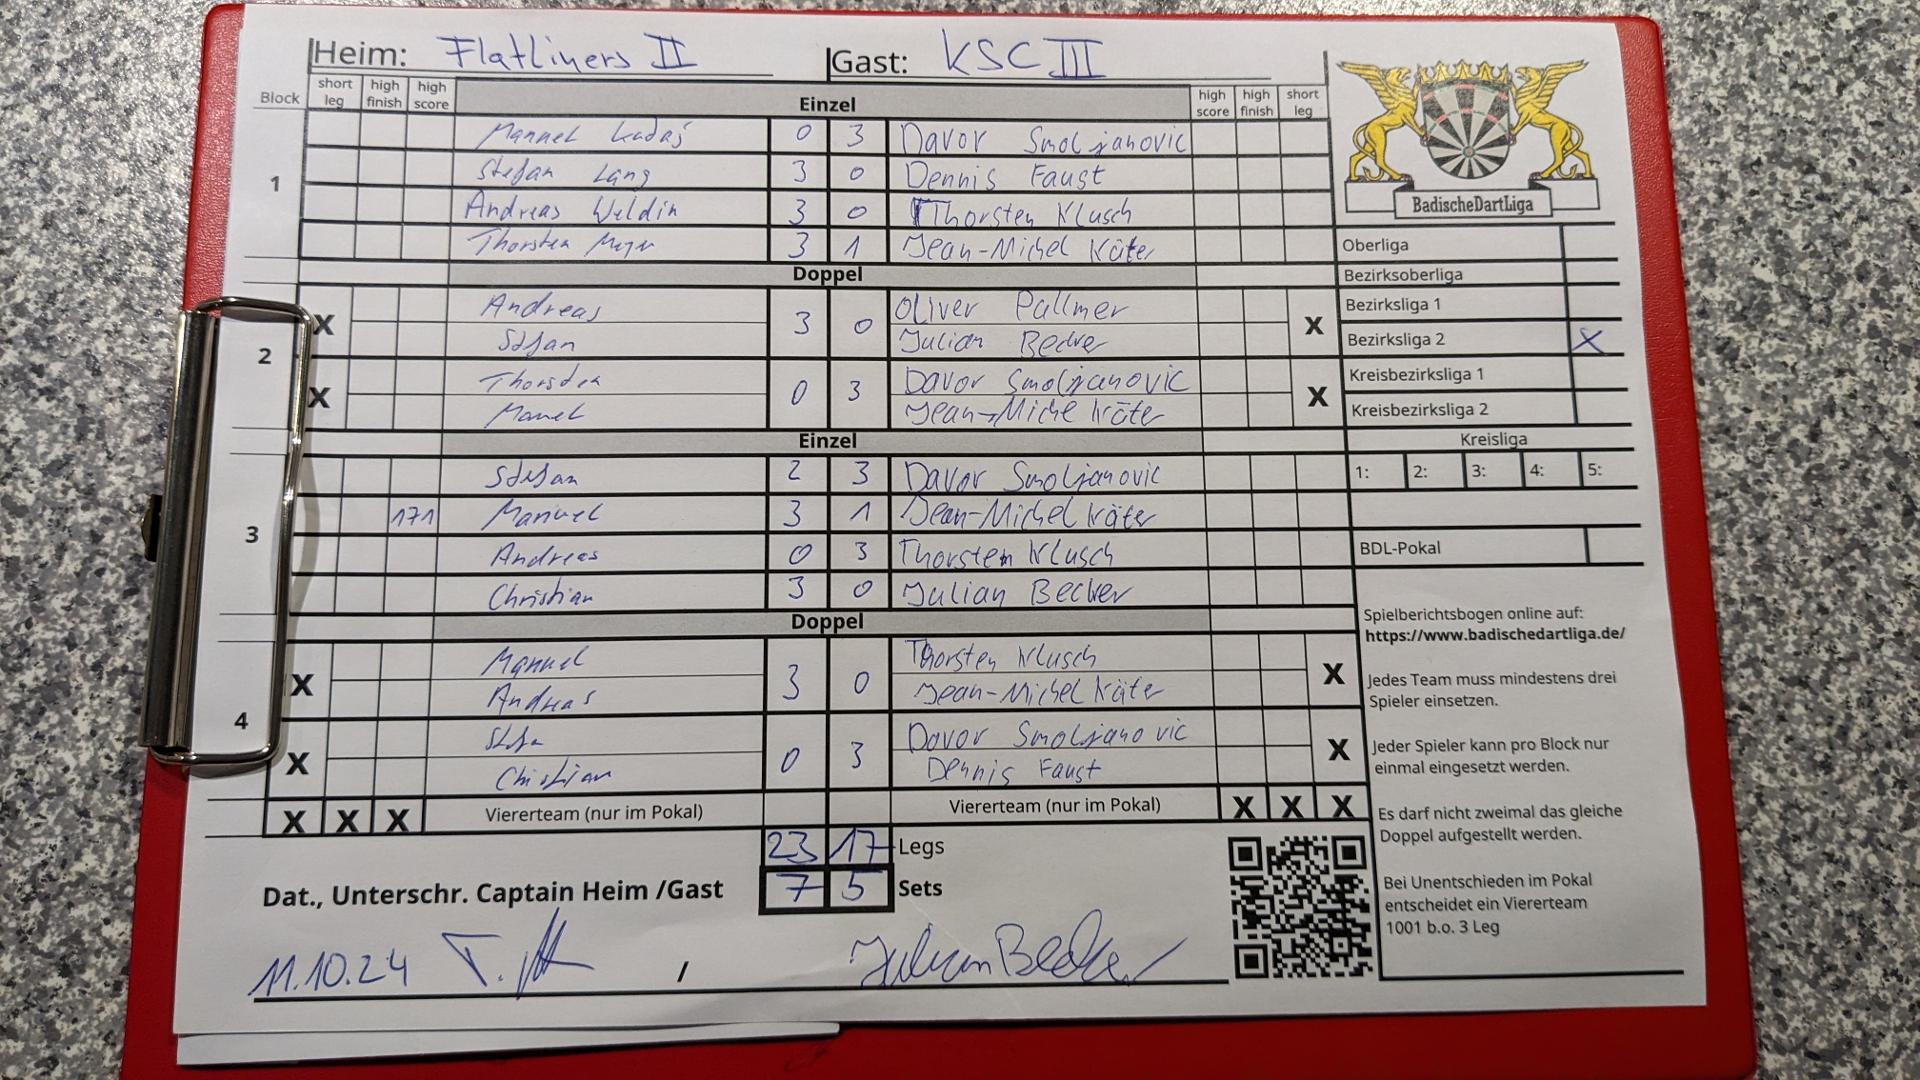 Heim: Flatliners II Gast: KSC III
Block short leg high finish high score Einzel high score high finish short leg
1
Manuel 0 3 Davor Smoljanovic
Stefan Lang 3 0 Dennis Faust
Andreas Weldin 3 0 Thorsten Klusch
Thorsten 3 1 Jean-Michel Käter
Doppel
2
X Andreas 3 0 Oliver Pallmer X
Stefan Julian Becker
X Thorsten 0 3 Davor Smoljanovic X
Manuel Jean-Michel Käter
Einzel
3
Stefan 2 3 Davor Smoljanovic
171 Manuel 3 1 Jean-Michel Käter
Andreas 0 3 Thorsten Klusch
Christian 3 0 Julian Becker
Doppel
4
X Manuel 3 0 Thorsten Klusch X
Andreas Jean-Michel Käter
X Stefan 0 3 Davor Smoljanovic X
Christian Dennis Faust
X X X Viererteam (nur im Pokal) Viererteam (nur im Pokal) X X X
23 17 Legs
7 5 Sets
Dat., Unterschr. Captain Heim /Gast
11.10.24 / Julian Becker
BadischeDartLiga
Oberliga
Bezirksoberliga
Bezirksliga 1
Bezirksliga 2 X
Kreisbezirksliga 1
Kreisbezirksliga 2
Kreisliga
1: 2: 3: 4: 5:
BDL-Pokal
Spielberichtsbogen online auf:
https://www.badischedartliga.de/
Jedes Team muss mindestens drei
Spieler einsetzen.
Jeder Spieler kann pro Block nur
einmal eingesetzt werden.
Es darf nicht zweimal das gleiche
Doppel aufgestellt werden.
Bei Unentschieden im Pokal
entscheidet ein Viererteam
1001 b.o. 3 Leg